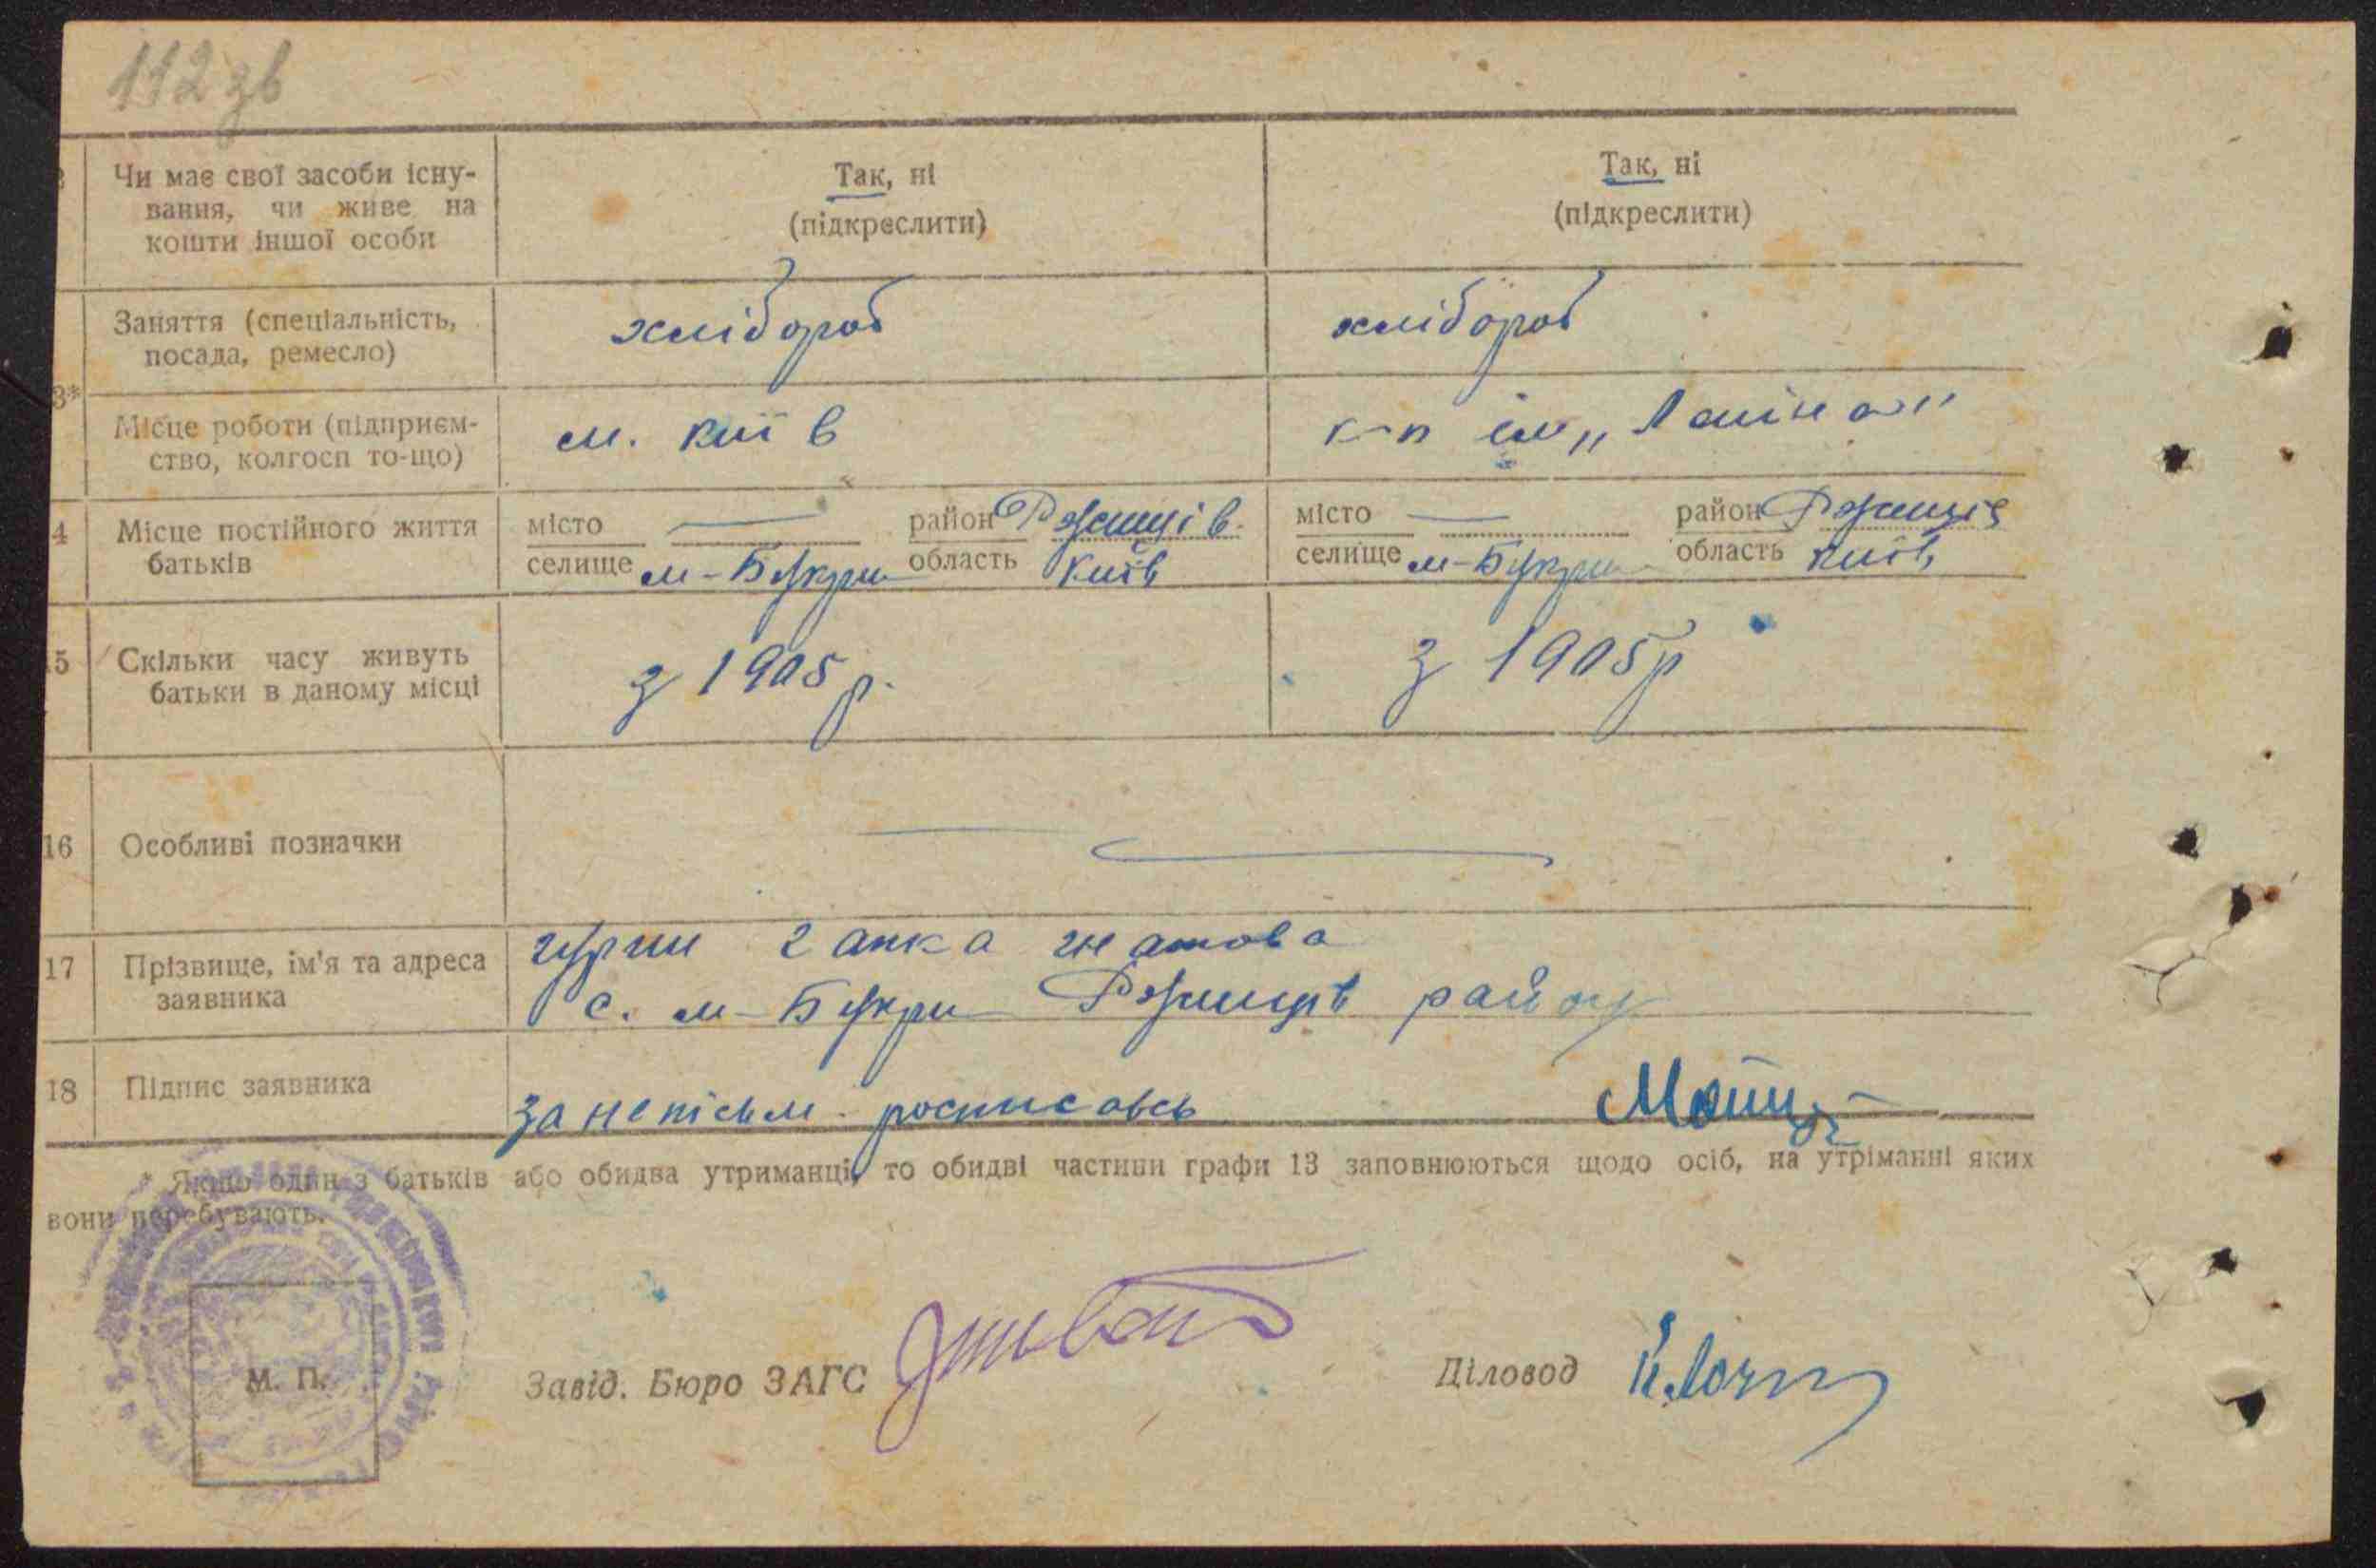 112 зв
Чи має свої засоби існу-
вання, чи живе на
кошти іншої особи
Так, ні
(підкреслити)
Так, ні
(підкреслити)
Заняття (спеціальність,
посада, ремесло)
хлібороб
хлібороб
3*
Місце роботи (підприєм-
ство, колгосп то-що)
м. київ
к-п ім „Леніна"
4
Місце постійного життя
батьків
місто — район Ржищів.
селище м-Букрин область Київ
місто — район Ржищів
селище м-Букрин область Київ
15
Скільки часу живуть
батьки в даному місці
з 1905 р.
з 1905 р
16
Особливі позначки
17
Прізвище, ім'я та адреса
заявника
гапка
с. м-Букрин Ржищів району
18
Підпис заявника
за неписьм. росписавсь
* Якщо один з батьків або обидва утриманці, то обидві частини графи 13 заповнюються щодо осіб, на утріманні яких
вони перебувають.
М. П.
Завід. Бюро ЗАГС
Діловод